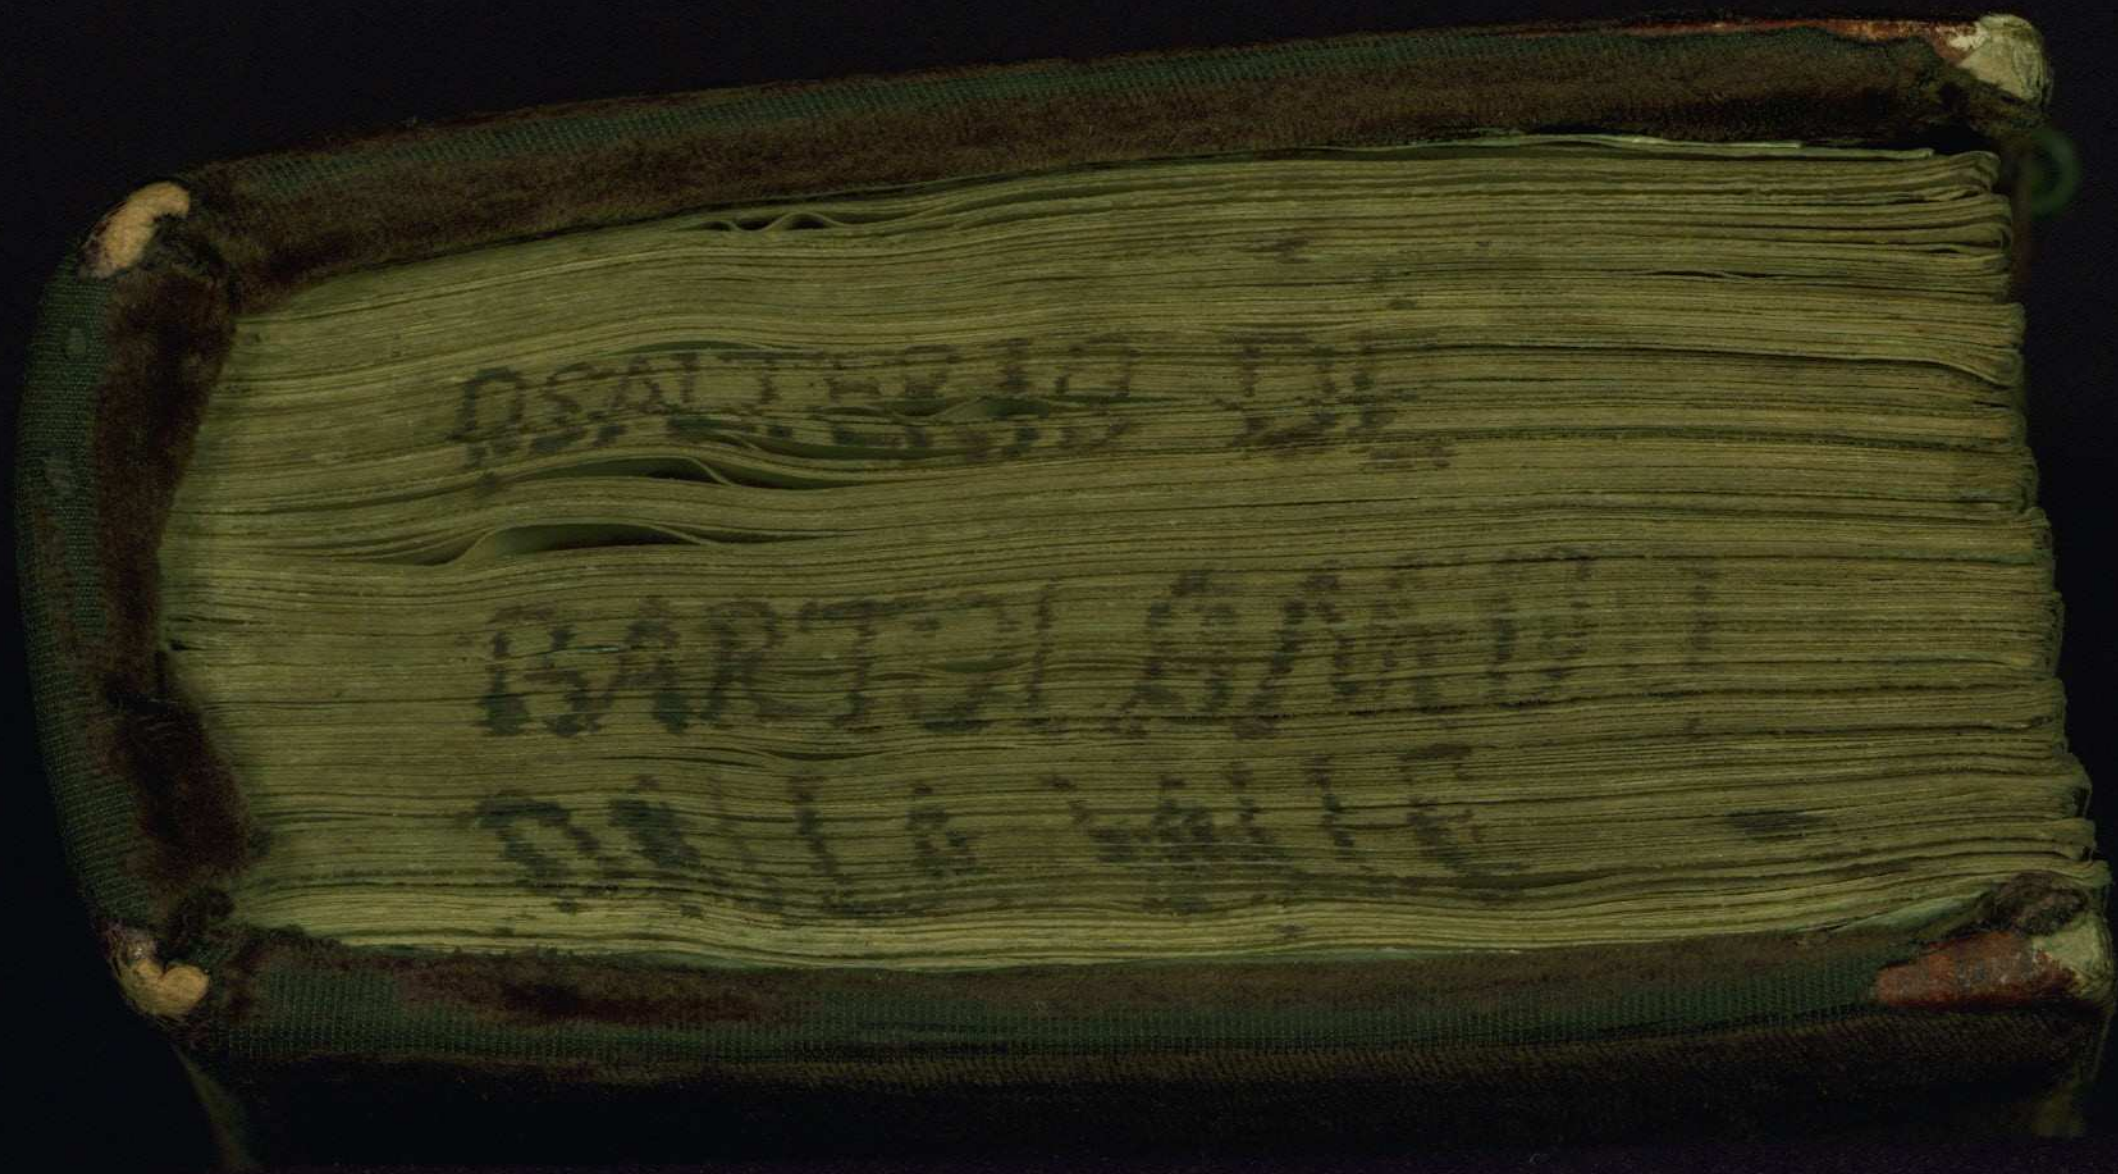 PSALTERIO DE
BARTOLAMEO
DALLA VALLE